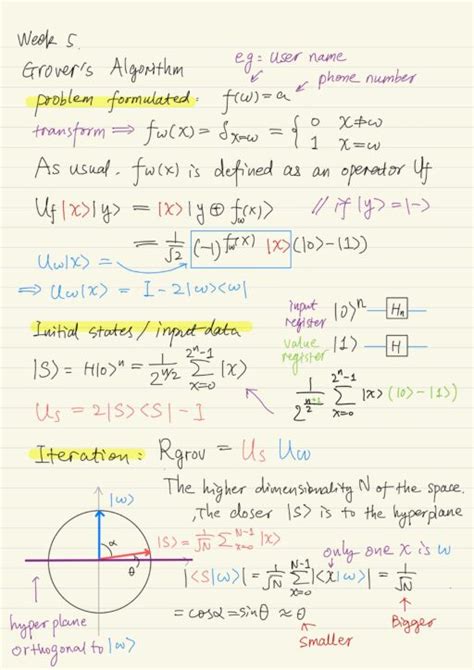 Week 5.
Grover's Algorithm
eg: user name
phone number
problem formulated: f(ω)=a
transform ⟹ fω(x) = δx=ω = { 0 x≠ω
1 x=ω
As usual. fω(x) is defined as an operator Uf
Uf|x>|y> = |x>|y ⊕ fω(x)> // if |y> = |->
= 1/√2 (-1)^fω(x) |x>(|0>-|1>)
Uω|x> =
⟹ Uω(x) = I-2|ω><ω|
Initial states / input data
input register |0>^n Hn
value register |1> H
|S> = H|0>^n = 1/2^n/2 Σ x=0 2^n-1 |x>
1/2^n+1/2 Σ x=0 2^n-1 |x>(|0>-|1>)
Us = 2|S><S|-I
Iteration: Rgrov = Us Uω
The higher dimensionality N of the space.
, The closer |S> is to the hyperplane
|ω>
α
θ
|S> = 1/√N Σ x=0 N-1 |x>
only one x is ω
|<S|ω>| = 1/√N Σ x=0 N-1 |<x|ω>| = 1/√N
= cosα = sinθ ≈ θ
smaller
Bigger
hyperplane
orthogonal to |ω>